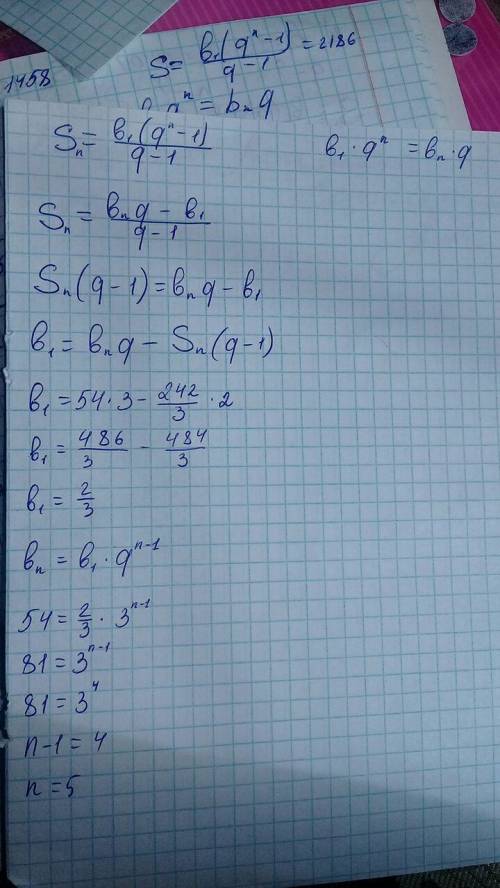 1458
S = в₁(qⁿ - 1) / (q - 1) = 2186
qⁿ = bₙ q
Sₙ = в₁(qⁿ - 1) / (q - 1)    в₁ · qⁿ = вₙ · q
Sₙ = (вₙ q - в₁) / (q - 1)
Sₙ (q - 1) = вₙ q - в₁
в₁ = вₙ q - Sₙ (q - 1)
в₁ = 54 · 3 - 242/3 · 2
в₁ = 486/3 - 484/3
в₁ = 2/3
вₙ = в₁ · qⁿ⁻¹
54 = 2/3 · 3ⁿ⁻¹
81 = 3ⁿ⁻¹
81 = 3⁴
n - 1 = 4
n = 5